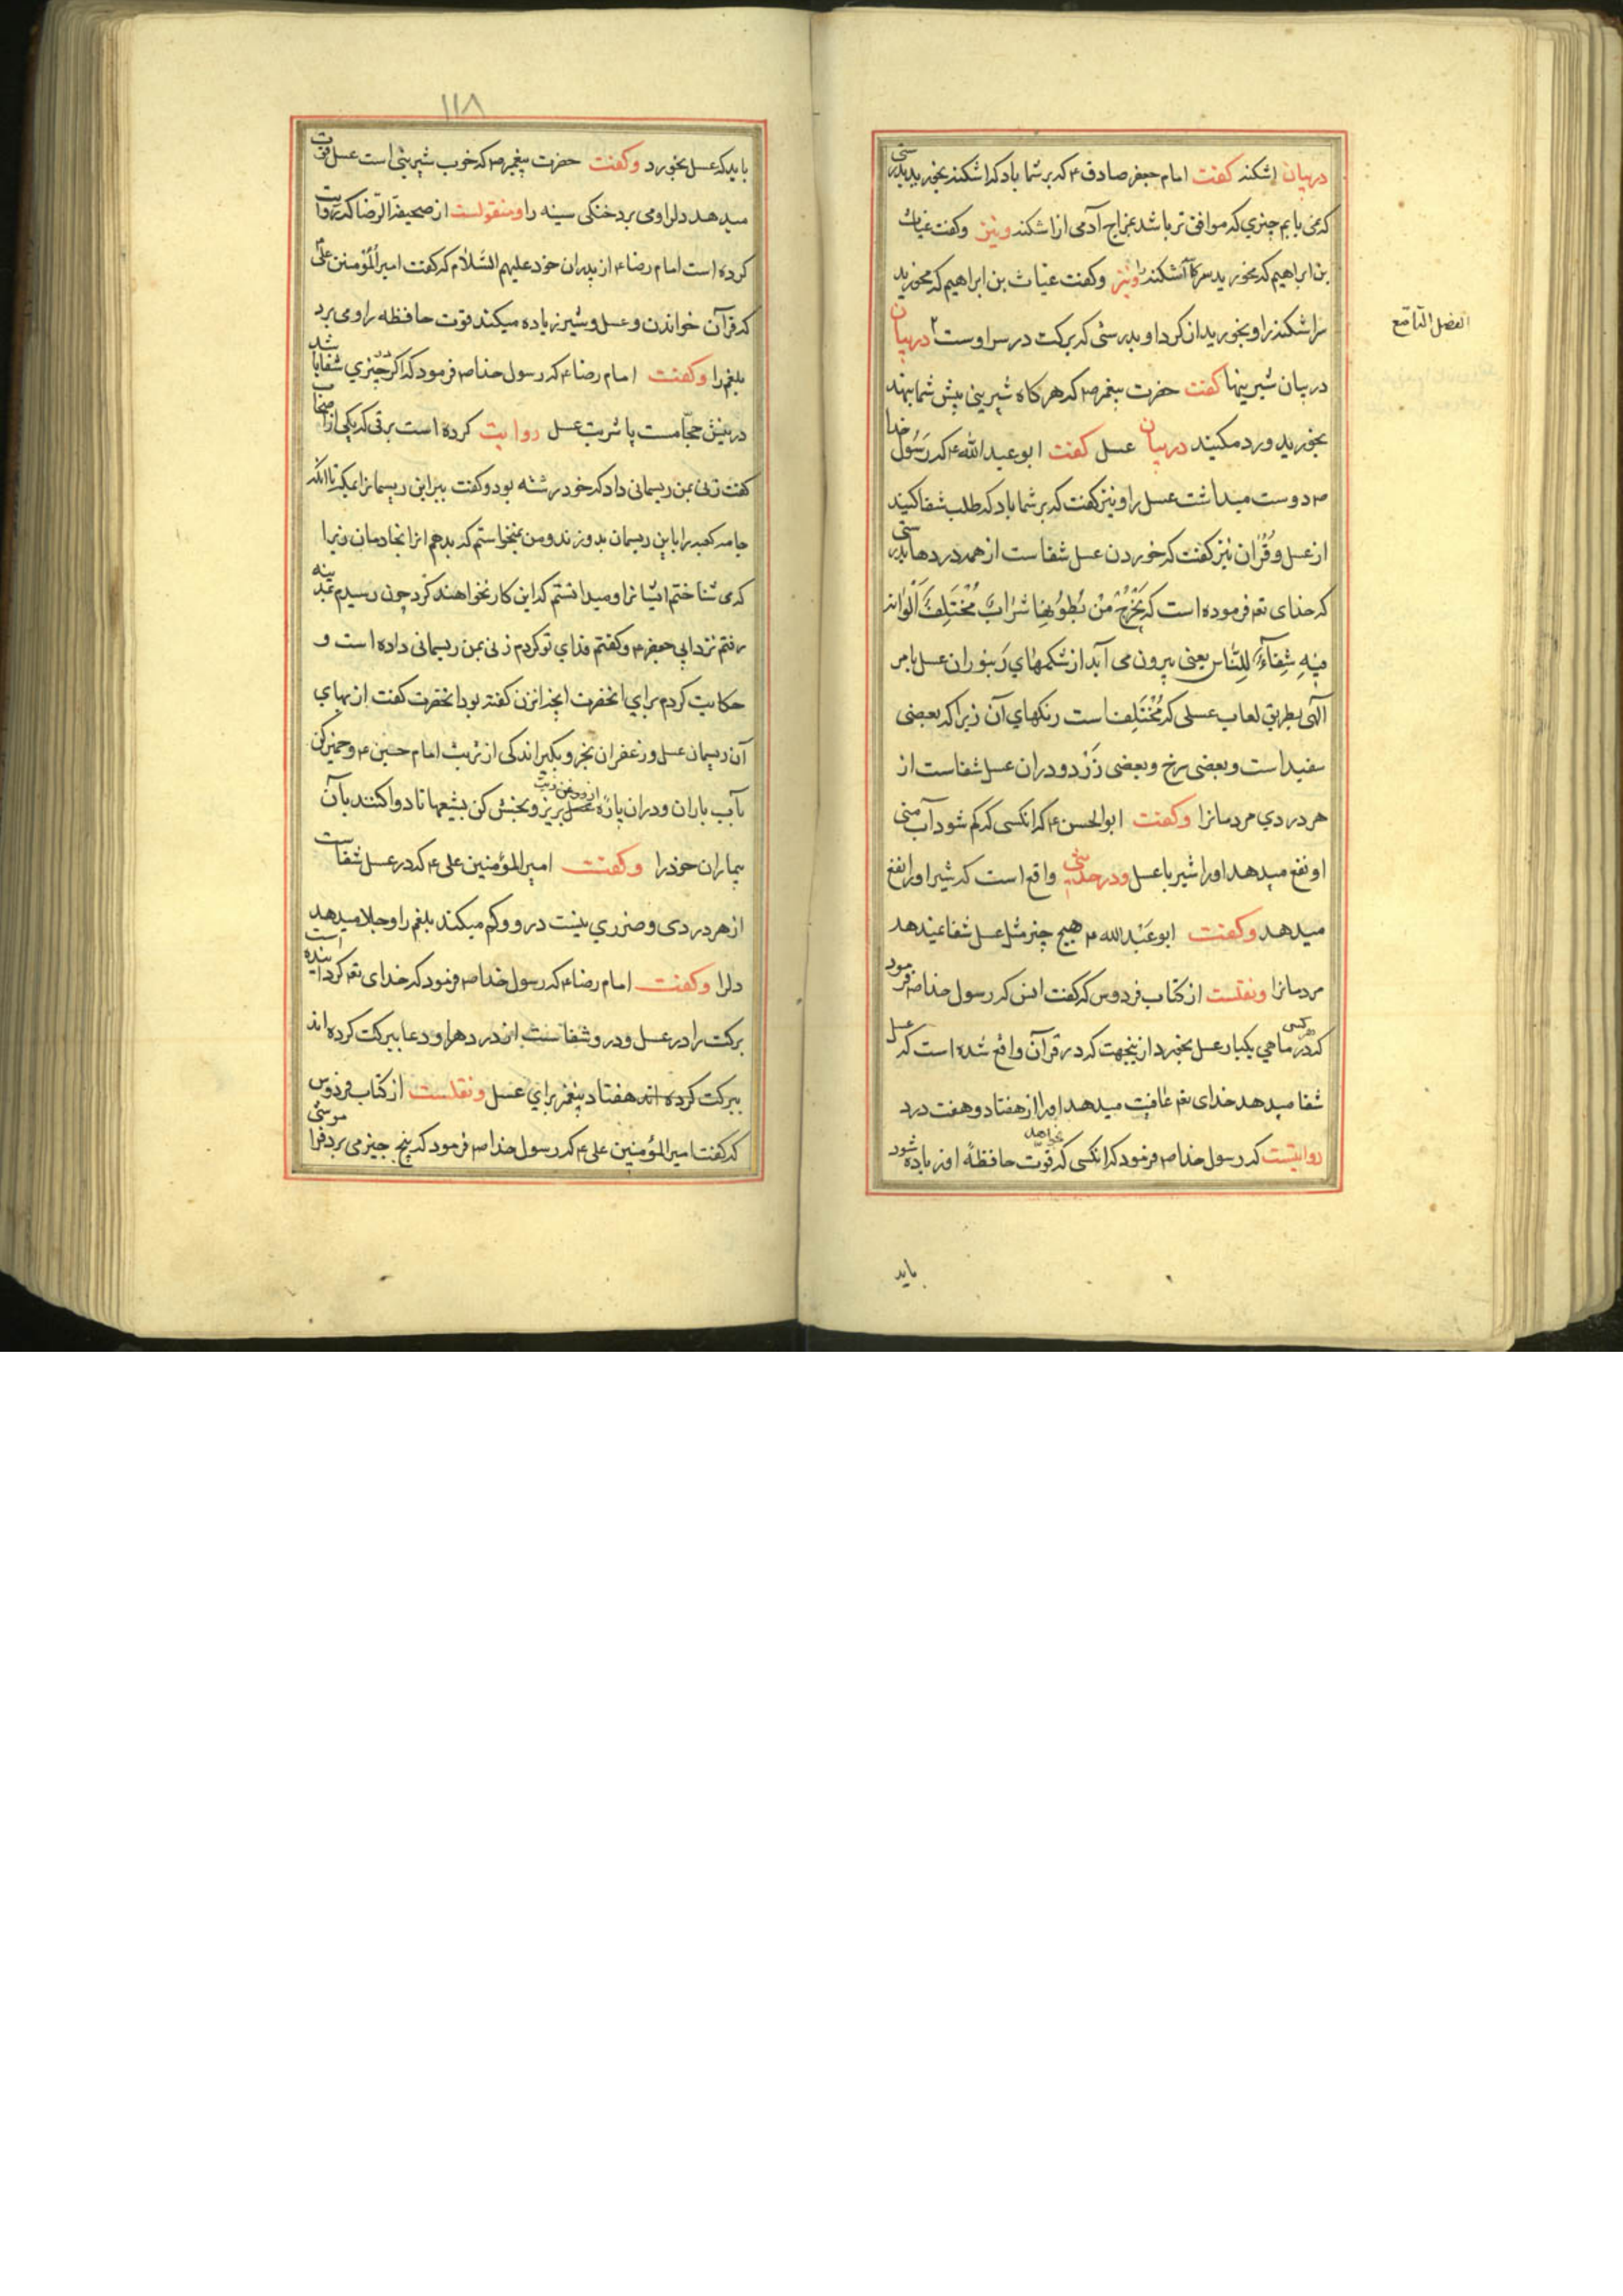 در بیان اشکنه کفت امام جعفر صادق ع که بر شما باد که اشکنه بخورید بدرستی
که نمی یابم چیزی که موافق تر باشد بمزاج آدمی از اشکنه و نیز وکفت غیاث
بن ابراهیم که بخورید سرکا اشکنه را و نیز وکفت غیاث بن ابراهیم که مخورید
سر اشکنه را و بخورید از کرد او بدرستی که برکت در سر اوست در بیان
الفصل التاسع
در بیان شیرینها کفت حضرت پیغمبر ص که هر کاه شیرینی پیش شما بنهند
بخورید و رد مکنید در بیان عسل کفت ابو عبد الله ع که رسول خدا
ص دوست میداشت عسل را و نیز کفت که بر شما باد که طلب شفا کنید
از عسل و قرآن نیز کفت که خوردن عسل شفا ست از همه دردها بدرستی
که خدای تع فرموده است که یَخْرُجُ مِنْ بُطُونِهَا شَرَابٌ مُخْتَلِفٌ اَلْوَانُهُ
فِیهِ شِفَآءٌ لِلنَّاسِ یعنی بیرون می آید از شکمهای زنبوران عسل بامر
الهی بطریق لعاب عسلی که مختلف است رنکهای آن زیرا که بعضی
سفید است و بعضی سرخ و بعضی زرد و در آن عسل شفاست از
هر دردی مردمانرا وکفت ابو الحسن ع که انکسی که کم شود آب منی
او نفع میدهد او را شیر با عسل و در حدیثی واقع است که شیر او را نفع
میدهد وکفت ابو عبد الله ع هیچ چیز مثل عسل شفا نمیدهد
مردمانرا و نقلست از کتاب فردوس که کفت انس که رسول خدا ص فرمود
که هر کس در ماهی یکبار عسل بخورد ازینجهت که در قرآن واقع شده است که عسل
شفا میدهد خدای تع عافیت میدهد او را از هفتاد و هفت درد
روایتست که رسول خدا ص فرمود که انکسی که خواهد قوّت حافظهٔ او زیاده شود
باید
۱۱۸
باید که عسل بخورد وکفت حضرت پیغمبر ص که خوب شیرینی است عسل قوت
میدهد دلرا و می برد خنکی سینه را و منقولست از صحیفة الرضا که روایت
کرده است امام رضا ع از پدران خود علیهم السّلام که کفت امیر المؤمنین علی ع
که قرآن خواندن و عسل و شیر زیاده میکند قوت حافظه را و می برد
بلغم را وکفت امام رضا ع که رسول خدا ص فرمود که اکر در چیزی شفا باشد
در نیش حجّامست یا شربت عسل روایت کرده است برقی که یکی از اصحاب
کفت زنی بمن ریسمانی داد که خود رشته بود و کفت ببر این ریسمانرا بمکه تا انکه
جامه کعبه را باین ریسمان بدوزند و من نمیخواستم که بدهم انرا بخادمان زیرا
که می شناختم ایشانرا و میدانستم که این کار نخواهند کرد چون رسیدم بمدینه
رفتم نزد ابی جعفر ع و کفتم فدای تو کردم زنی بمن ریسمانی داده است و
حکایت کردم برای انحضرت انچه انزن کفته بود انحضرت کفت از بهای
آن ریسمان عسل و زعفران بخر و بکیر اندکی از تربت امام حسین ع و خمیر کن
بآب باران و در آن پارهٔ عسل بریز و بخش کن بشیعها تا دوا کنند بآن
بیماران خود را وکفت امیر المؤمنین علی ع که در عسل شفاست
از هر دردی و ضرری نیست در و و کم میکند بلغم را و جلا میدهد
دلرا وکفت امام رضا ع که رسول خدا ص فرمود که خدای تع کردانیده است
برکت را در عسل و در و شفاست از دردها و دعا ببرکت کرده اند
ببرکت کرده اند هفتاد پیغمبر برای عسل و نقلست از کتاب فردوس
که کفت امیر المؤمنین علی ع که رسول خدا ص فرمود که پنج چیز می برد فراموشی